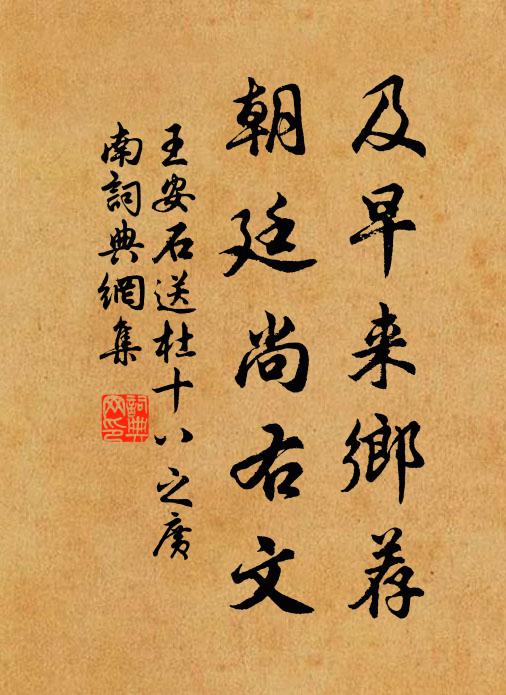 及早来鄉荐
朝廷尚右文
王安石送杜十八之廣
南詞典網集
詞典
网印